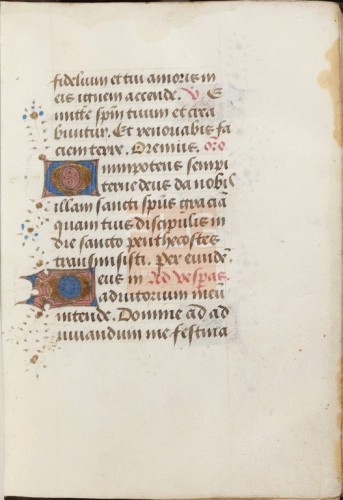 fidelium et tui amoris in
eis ignem accende. V. E
mitte sp̄m tuum et crea
buntur. Et renovabis fa
ciem terre. Oremus. oro
Omnipotens sempi
terne deus da nobis
illam sancti sp̄us graciā
quam tuis discipulis in
die sancto penthecostes
transmisisti. Per eundē
Deus in Ad vespas
adiutorium meū
intende. Domine ad ad
iuuandum me festina